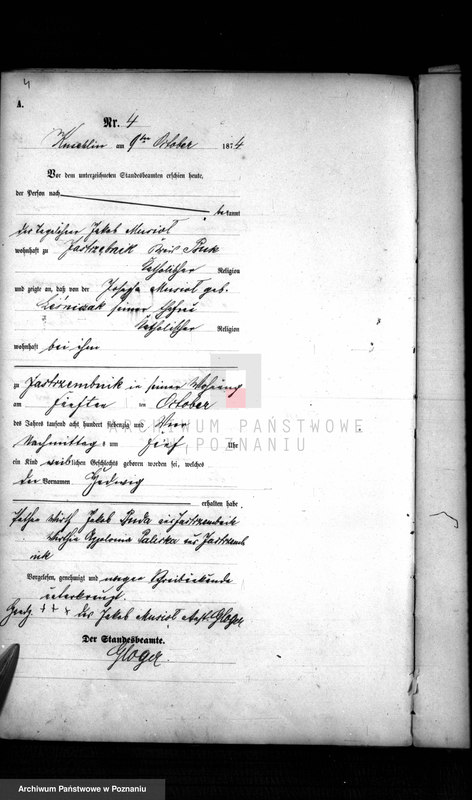 4
A.
Nr. 4
am 9ten October 1874
Vor dem unterzeichneten Standesbeamten erschien heute,
der Person nach
bekannt
der Jakob Musiol
wohnhaft zu Jastrzębnik Kreis Buk
Katholischer Religion
und zeigte an, daß von der Josefa Musiol geb.
seiner Ehefrau
Katholischer Religion
wohnhaft bei ihm
zu Jastrzembnik in seiner Wohnung
am fünften ten October
des Jahres tausend acht hundert siebenzig und Vier
Nachmittag s um fünf Uhr
ein Kind weiblichen Geschlechts geboren worden sei, welches
den Vornamen Hedwig
erhalten habe
ARCHIWUM PAŃSTWOWE
W POZNANIU
Wirth Jakob aus Jastrzembnik
aus Jastrzemb
nik
Vorgelesen, genehmigt und wegen
unterkreuzt.
+++ des Jakob Musiol Att. Gloger
Der Standesbeamte.
Gloger.
Archiwum Państwowe w Poznaniu